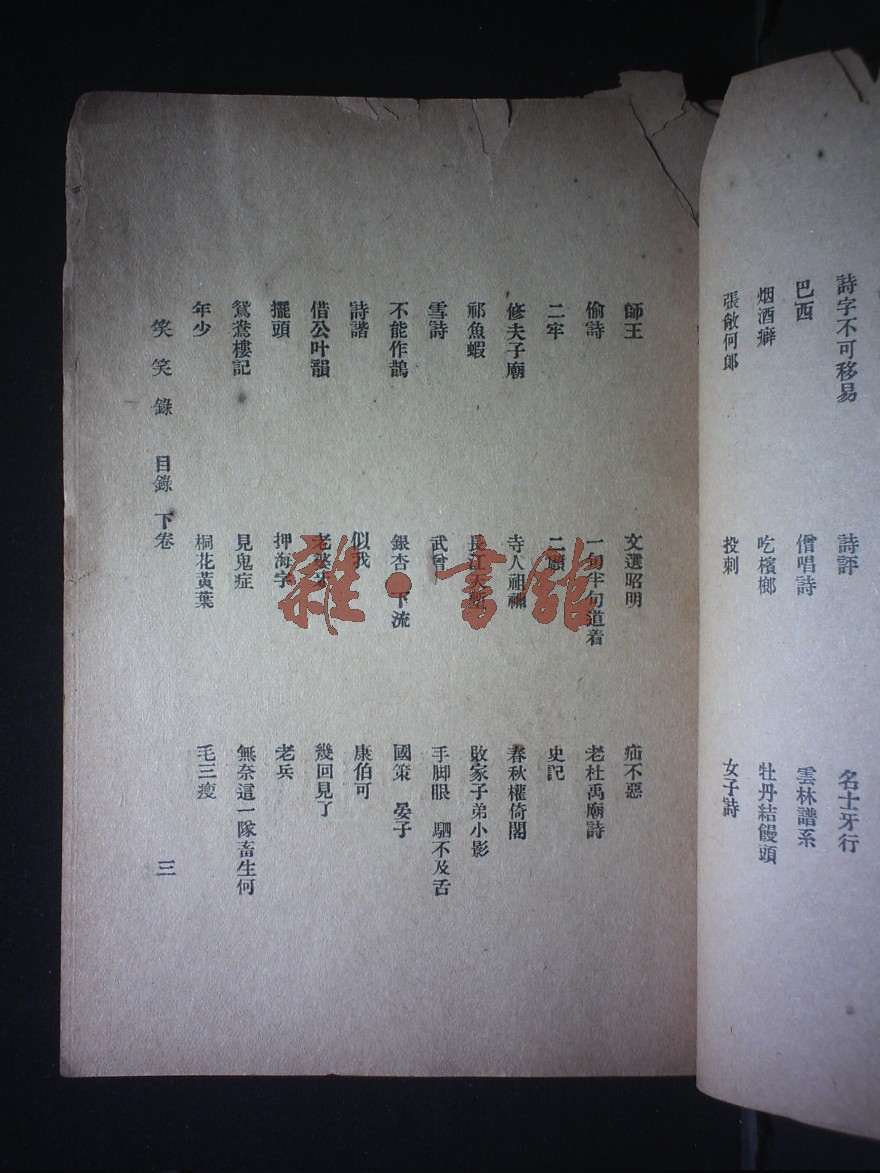 詩字不可移易　詩評　名士牙行
巴西　僧唱詩　雲林譜系
烟酒癖　吃檳榔　牡丹結饅頭
張敞何郎　投刺　女子詩
師王　文選昭明　疝不惡
偷詩　一句半句道着　老杜禹廟詩
二牢　二　史記
修夫子廟　寺人祖禰　春秋權倚閣
祁魚蝦　長江天塹　敗家子弟小影
雪詩　武曾　手脚眼　駟不及舌
不能作鵲　銀杏　下流　國策　晏子
詩諧　似我　康伯可
借公叶韻　老婆　幾回見了
擺頭　押海字　老兵
鴛鴦樓記　見鬼症　無奈這一隊畜生何
年少　桐花黃葉　毛三瘦
笑笑錄　目錄　下卷　三
雜·書館